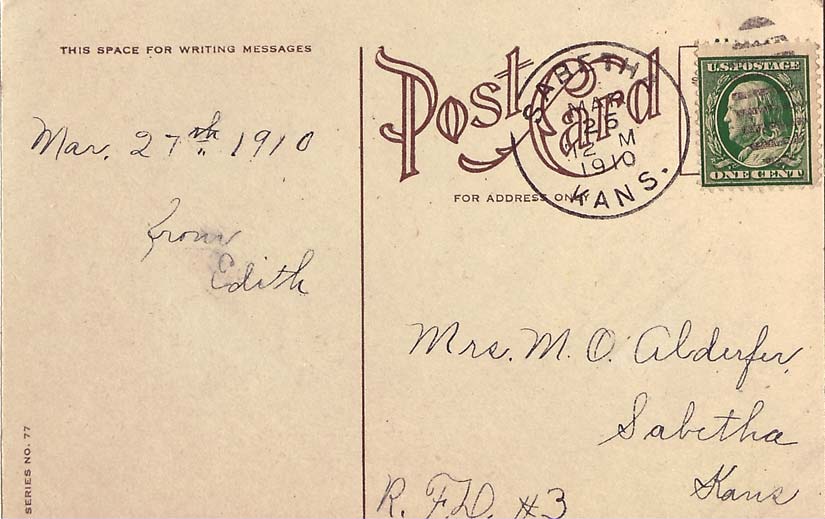 THIS SPACE FOR WRITING MESSAGES
Mar. 27th 1910
From
Edith
SERIES NO. 77
Post Card
FOR ADDRESS ONLY
SABETHA
MAR
25
12 M
1910
KANS.
U.S. POSTAGE
ONE CENT
Mrs. M. O. Alderfer,
Sabetha
Kans
R. F. D. #3